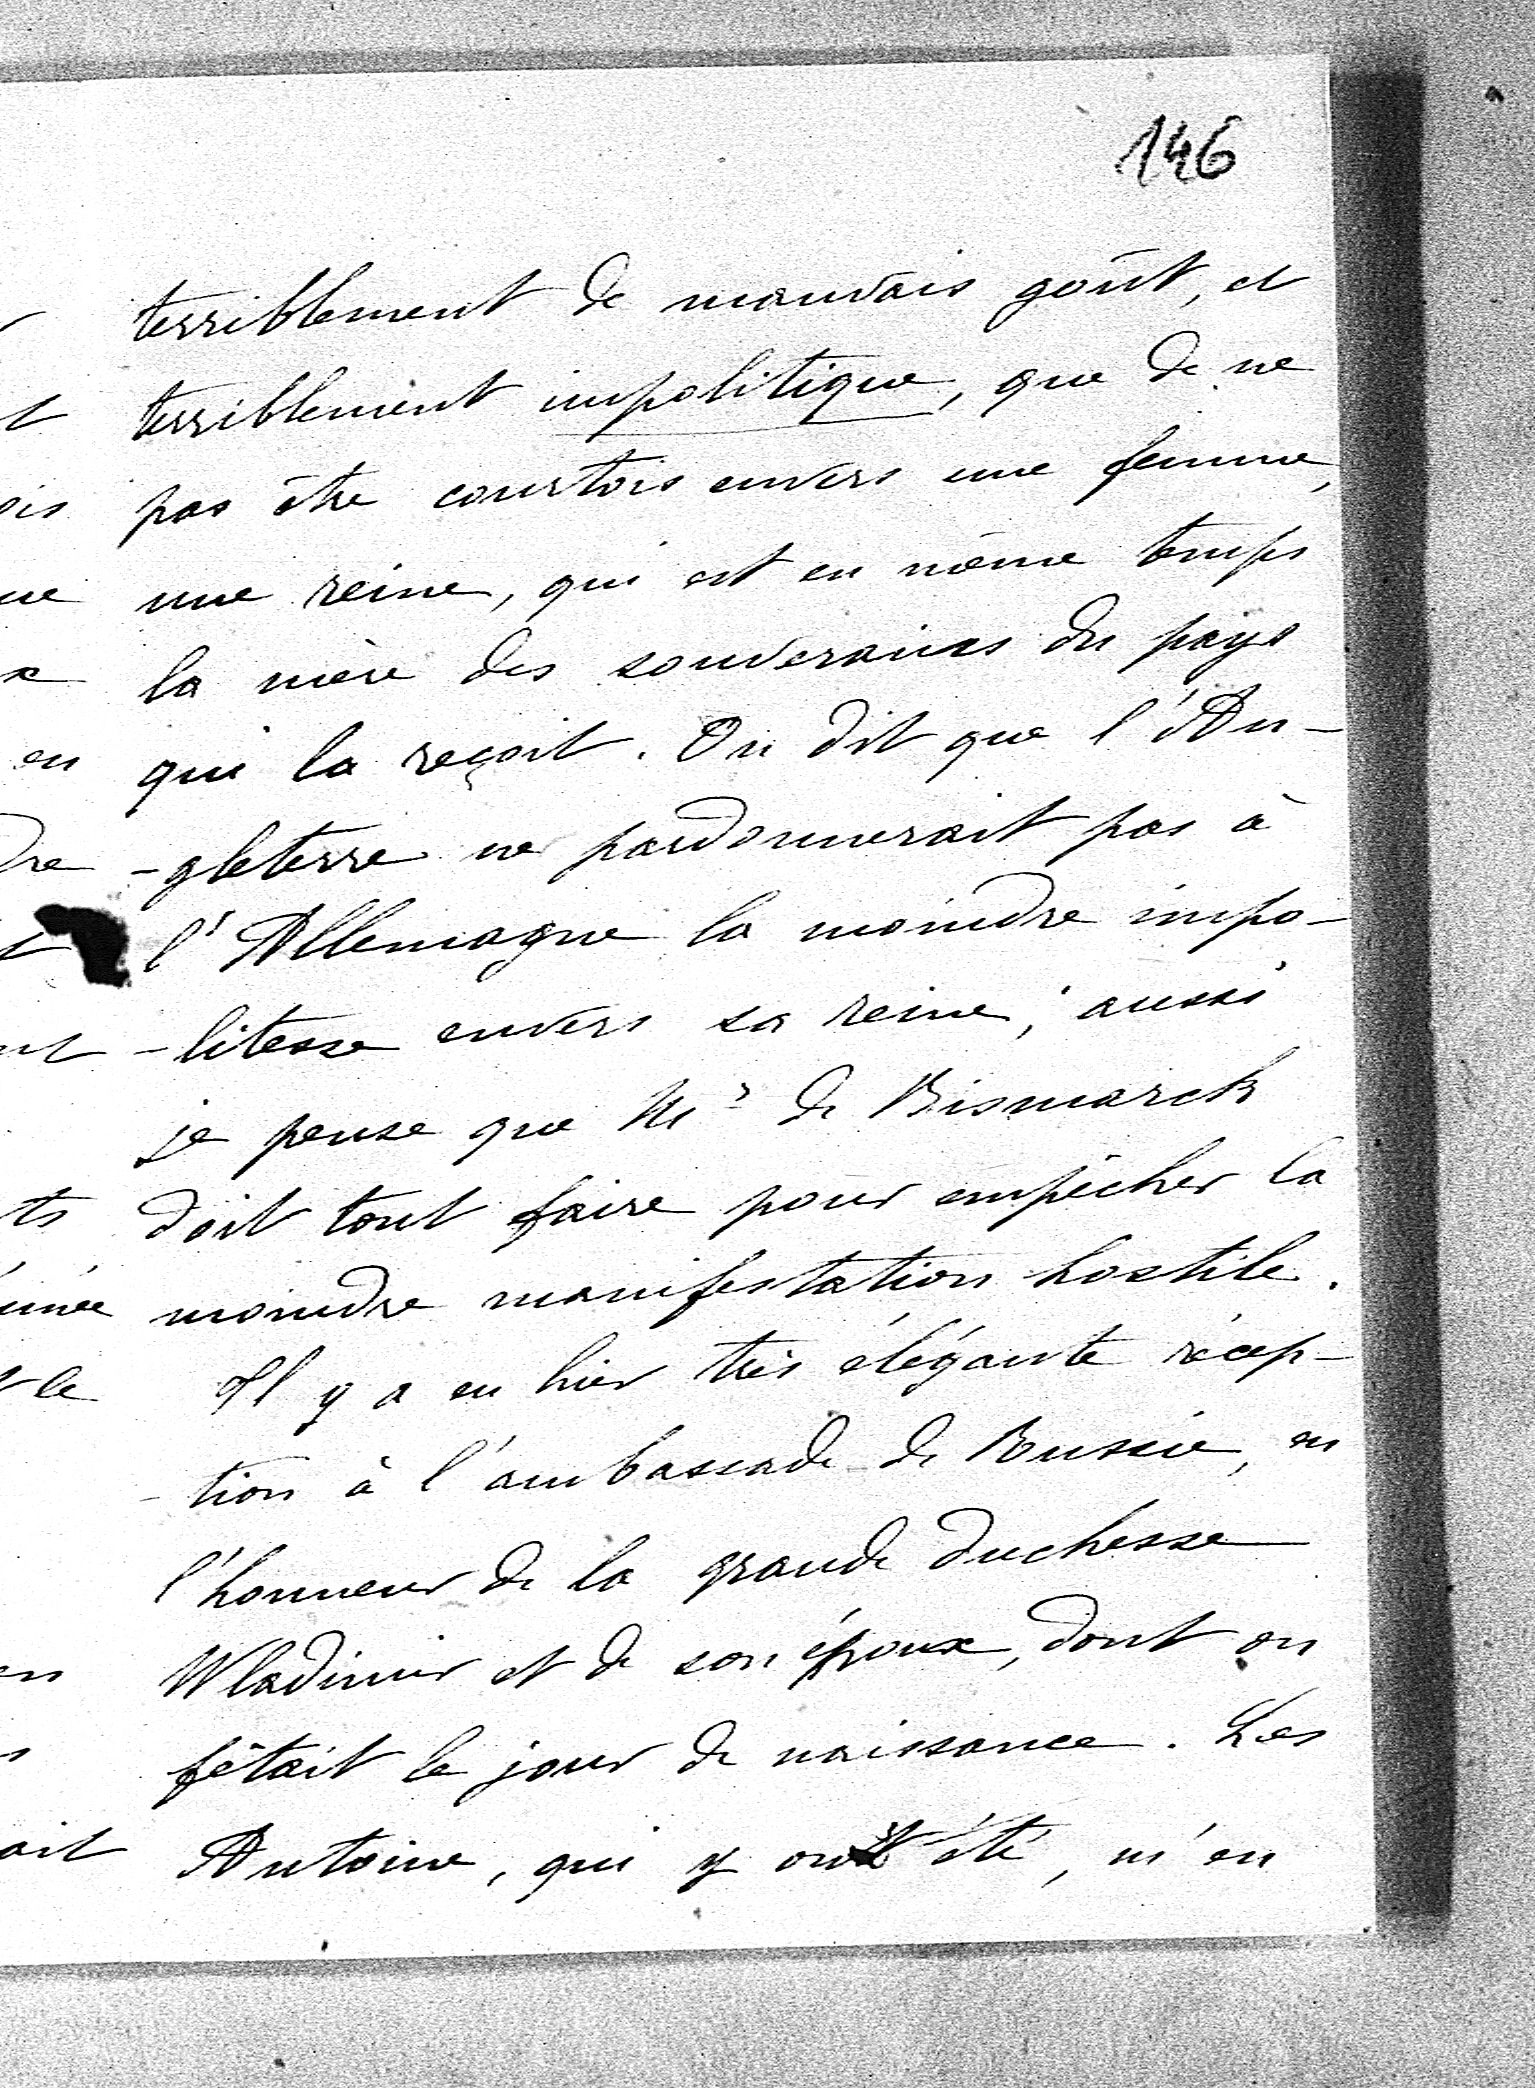 146
terriblement de mauvais goût, et
terriblement impolitique, que de ne
pas être courtois envers une femme,
une reine, qui est en même temps
la mère des souverains du pays
qui la reçoit. On dit que l'An-
-gleterre ne pardonnerait pas à
l'Allemagne la moindre impo-
-litesse envers sa reine; aussi
je pense que Mr de Bismarck
doit tout faire pour empêcher la
moindre manifestation hostile.
Il y a eu hier très élégante récep-
-tion à l'ambassade de Russie, en
l'honneur de la grande duchesse
Wladimir et de son époux, dont on
fêtait le jour de naissance. Les
Antoine, qui y ont été, m'en